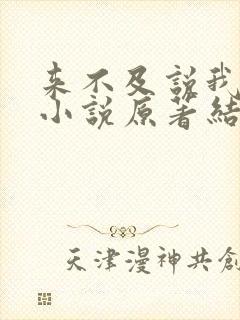 来不及说我
小说原著结
天津漫神共創